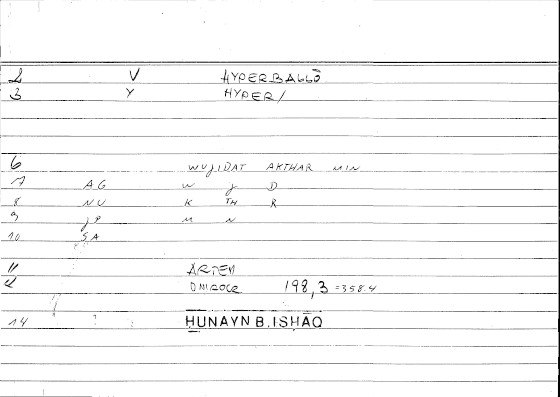 2 V HYPERBALLŌ
3 Y HYPER/
6 WUJIDAT AKTHAR MIN
7 AG W J D
8 NU K TH R
9 JP M N
10 SA
11 ARTEM
12 ONIROCR 198,3 =358.4
14 HUNAYN B. ISHĀQ